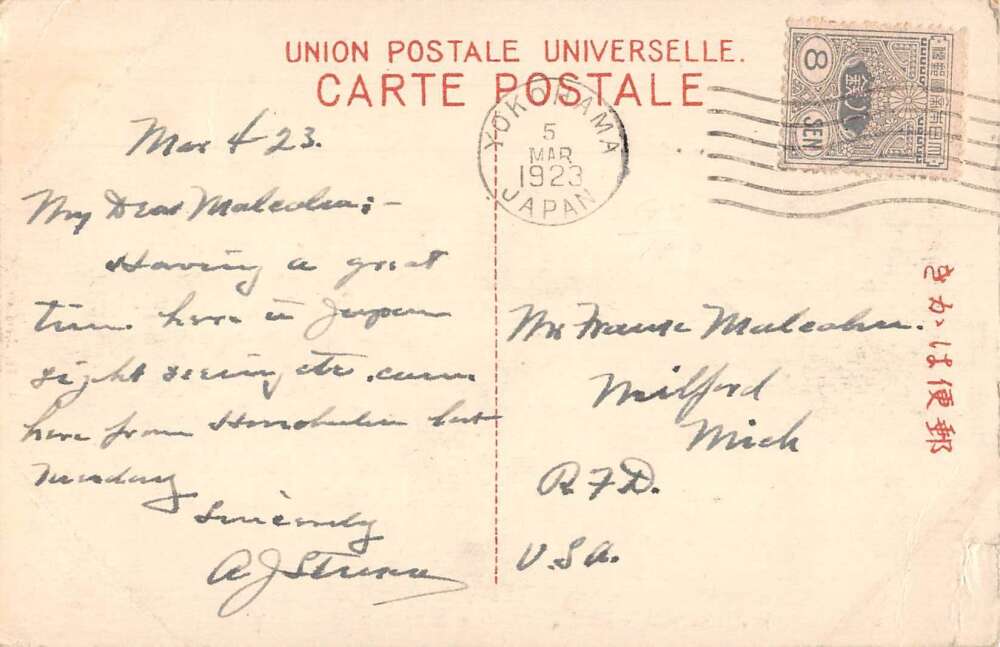 UNION POSTALE UNIVERSELLE.
CARTE POSTALE
YOKOHAMA
5
MAR
1923
JAPAN
8
SEN
Mar 4 23.
My Dear Malcolm:-
Having a great
time here in Japan
sight seeing etc. came
here from Honolulu last
Tuesday
Sincerely
A J
Mr Frank Malcolm.
Milford
Mich
R.F.D.
U.S.A.
郵便はかき